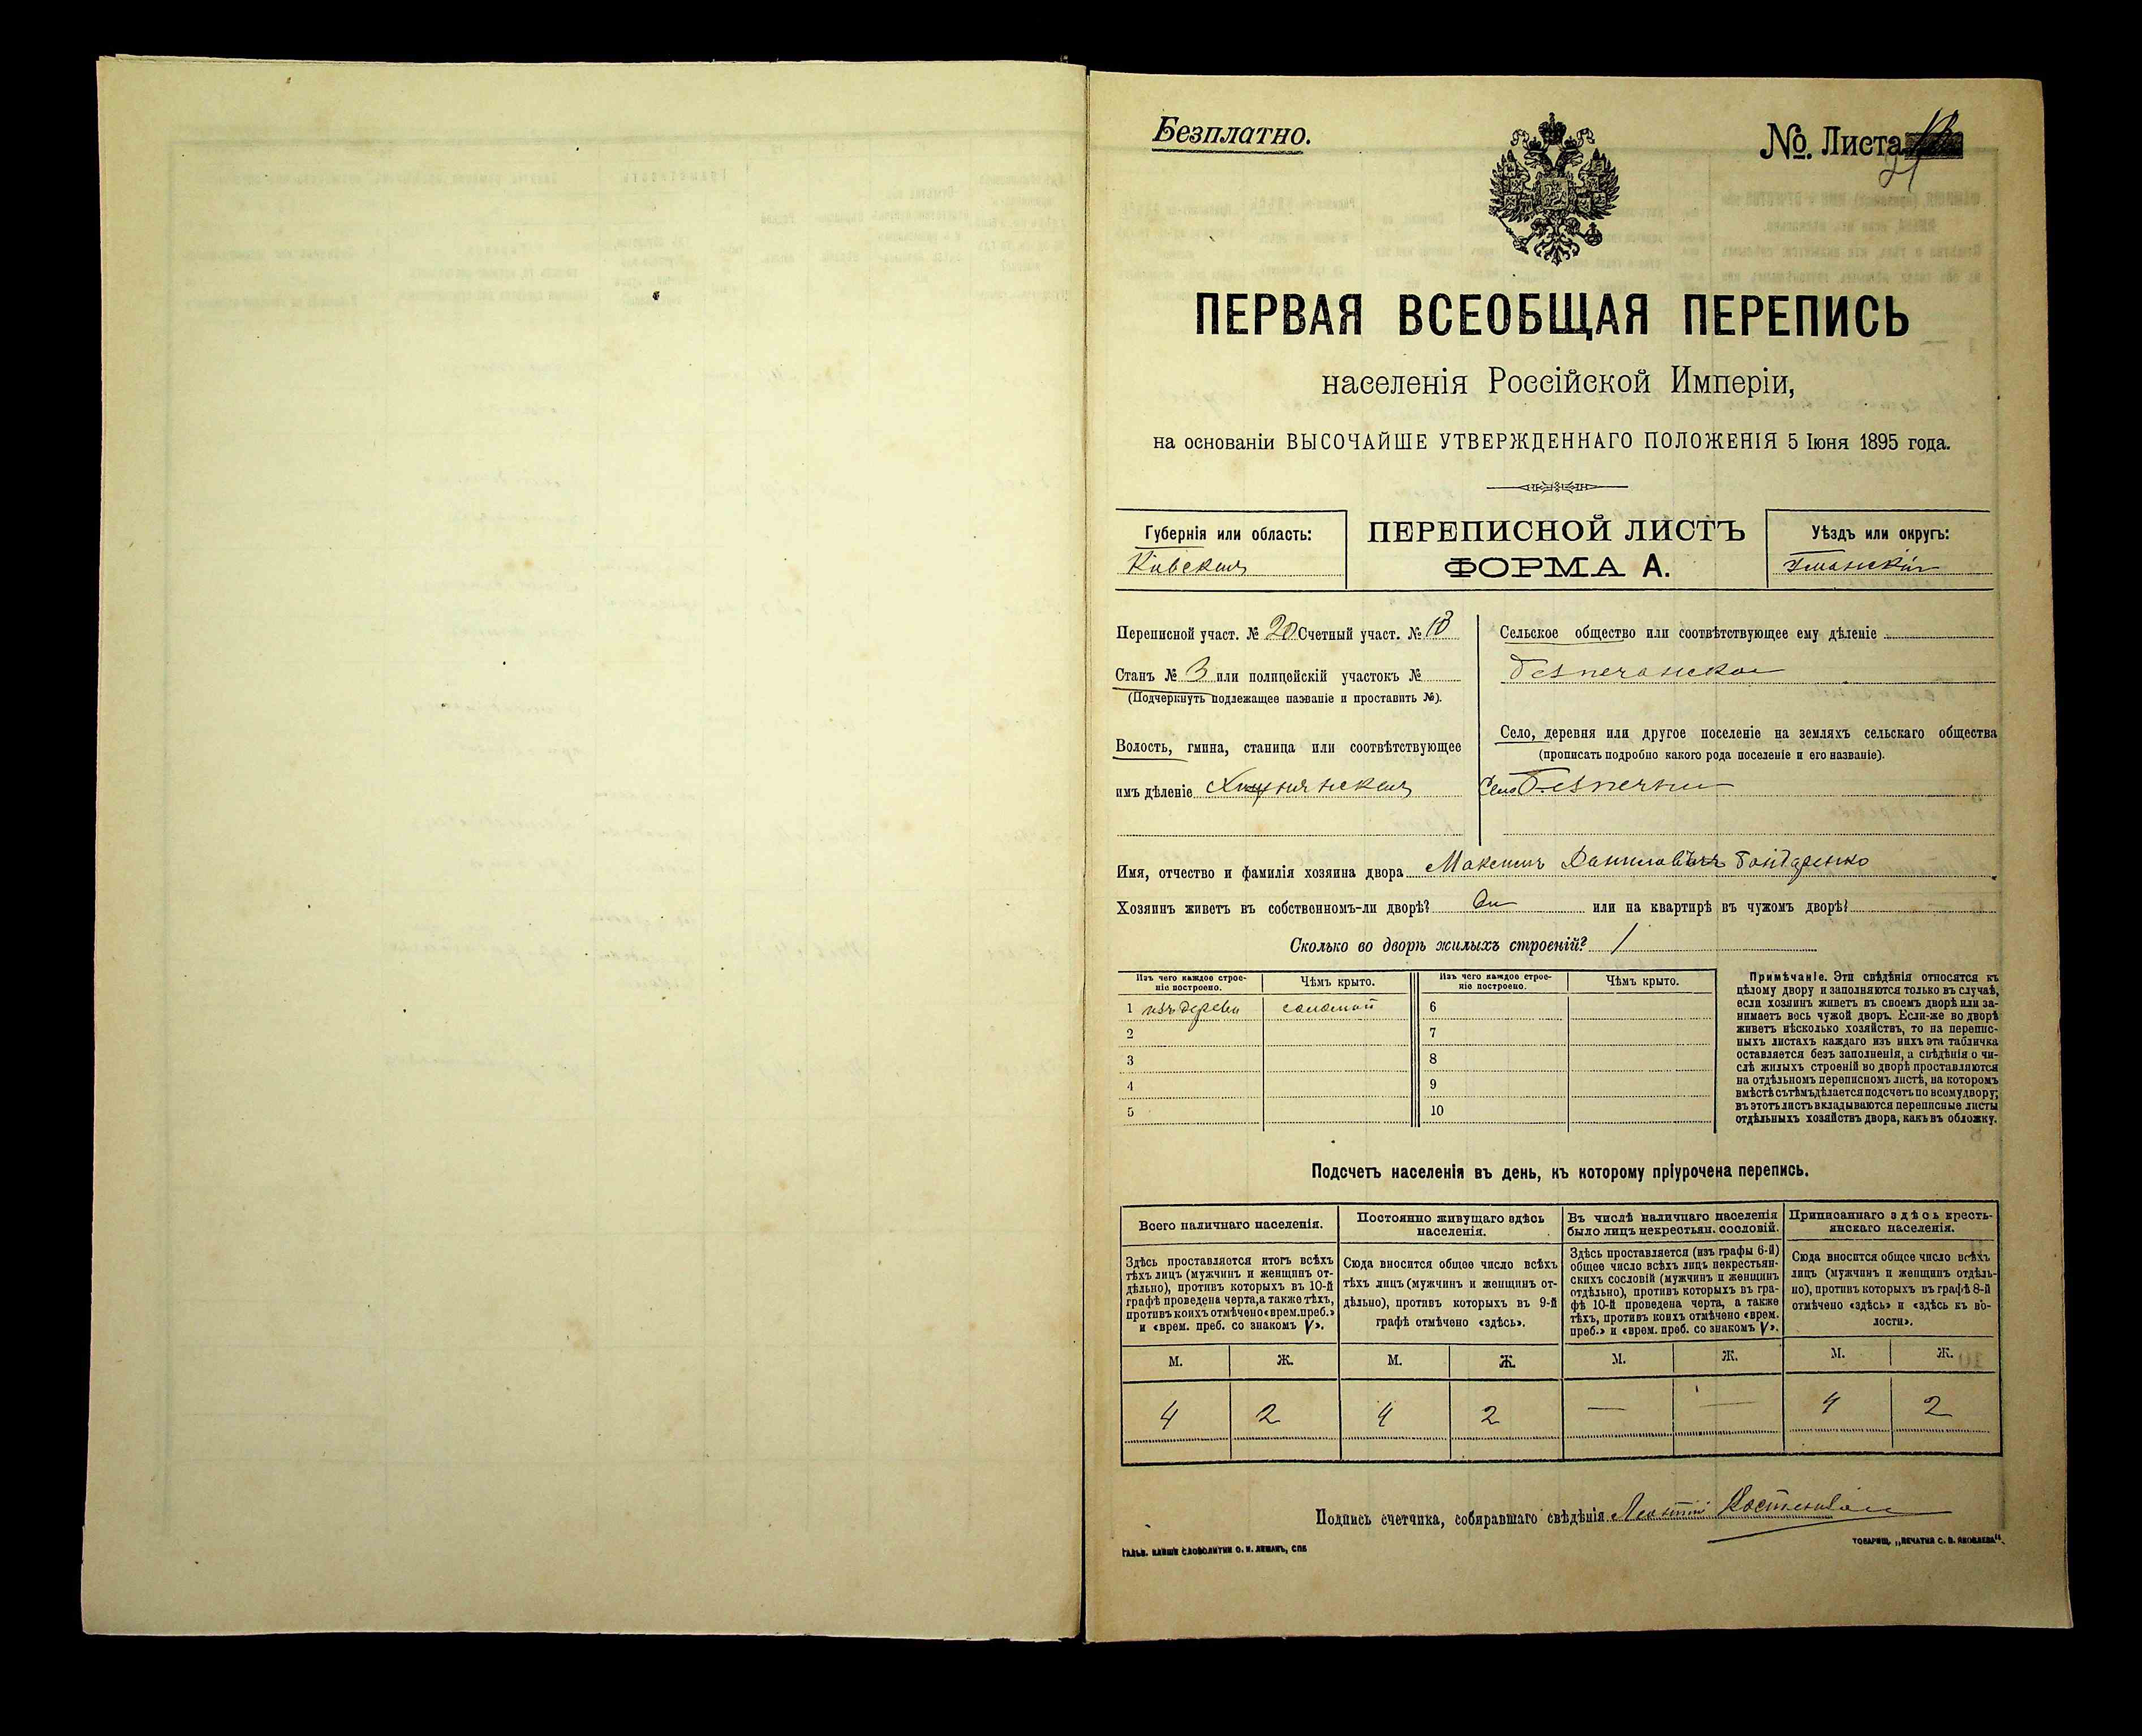 Безплатно.
№ Листа
21
ПЕРВАЯ ВСЕОБЩАЯ ПЕРЕПИСЬ
населенія Россійской Имперіи,
на основаніи ВЫСОЧАЙШЕ УТВЕРЖДЕННАГО ПОЛОЖЕНІЯ 5 Іюня 1895 года.
Губернія или область:
Кіевская
ПЕРЕПИСНОЙ ЛИСТЪ
ФОРМА А.
Уѣздъ или округъ:
Уманскій
Переписной участ. № 20 Счетный участ. № 18
Станъ № 3 или полицейскій участокъ №
(Подчеркнуть подлежащее названіе и проставить №).
Волость, гмина, станица или соотвѣтствующее
имъ дѣленіе
Сельское общество или соотвѣтствующее ему дѣленіе
Безпечанское
Село, деревня или другое поселеніе на земляхъ сельскаго общества
(прописать подробно какого рода поселеніе и его названіе).
Село Безпечни
Имя, отчество и фамилія хозяина двора Максимъ Даниловичъ Бондаренко
Хозяинъ живетъ въ собственномъ-ли дворѣ? или на квартирѣ въ чужомъ дворѣ?
Сколько во дворѣ жилыхъ строеній? 1
Изъ чего каждое строе-
ніе построено.
Чѣмъ крыто.
Изъ чего каждое строе-
ніе построено.
Чѣмъ крыто.
1 изъ дерева соломой 6
2 7
3 8
4 9
5 10
Примѣчаніе. Эти свѣдѣнія относятся къ
цѣлому двору и заполняются только въ случаѣ,
если хозяинъ живетъ въ своемъ дворѣ или за-
нимаетъ весь чужой дворъ. Если-же во дворѣ
живетъ нѣсколько хозяйствъ, то на перепис-
ныхъ листахъ каждаго изъ нихъ эта табличка
оставляется безъ заполненія, а свѣдѣнія о чи-
слѣ жилыхъ строеній во дворѣ проставляются
на отдѣльномъ переписномъ листѣ, на которомъ
вмѣстѣ съ тѣмъ дѣлается подсчетъ по всему двору;
въ этотъ листъ вкладываются переписные листы
отдѣльныхъ хозяйствъ двора, какъ въ обложку.
Подсчетъ населенія въ день, къ которому пріурочена перепись.
Всего наличнаго населенія.
Здѣсь проставляется итогъ всѣхъ
тѣхъ лицъ (мужчинъ и женщинъ от-
дѣльно), противъ которыхъ въ 10-й
графѣ проведена черта, а также тѣхъ,
противъ коихъ отмѣчено «врем. преб.»
и «врем. преб. со знакомъ V».
Постоянно живущаго здѣсь
населенія.
Сюда вносится общее число всѣхъ
тѣхъ лицъ (мужчинъ и женщинъ от-
дѣльно), противъ которыхъ въ 9-й
графѣ отмѣчено «здѣсь».
Въ числѣ наличнаго населенія
было лицъ некрестьян. сословій.
Здѣсь проставляется (изъ графы 6-й)
общее число всѣхъ лицъ некрестьян-
скихъ сословій (мужчинъ и женщинъ
отдѣльно), противъ которыхъ въ гра-
фѣ 10-й проведена черта, а также
тѣхъ, противъ коихъ отмѣчено «врем.
преб.» и «врем. преб. со знакомъ V».
Приписаннаго здѣсь кресть-
янскаго населенія.
Сюда вносится общее число всѣхъ
лицъ (мужчинъ и женщинъ отдѣль-
но), противъ которыхъ въ графѣ 8-й
отмѣчено «здѣсь» и «здѣсь къ во-
лости».
М. Ж. М. Ж. М. Ж. М. Ж.
4 2 4 2 — — 4 2
Подпись счетчика, собиравшаго свѣдѣнія Леонтій
ТОВАРИЩ. „ПЕЧАТНЯ С. П. ЯКОВЛЕВА“.